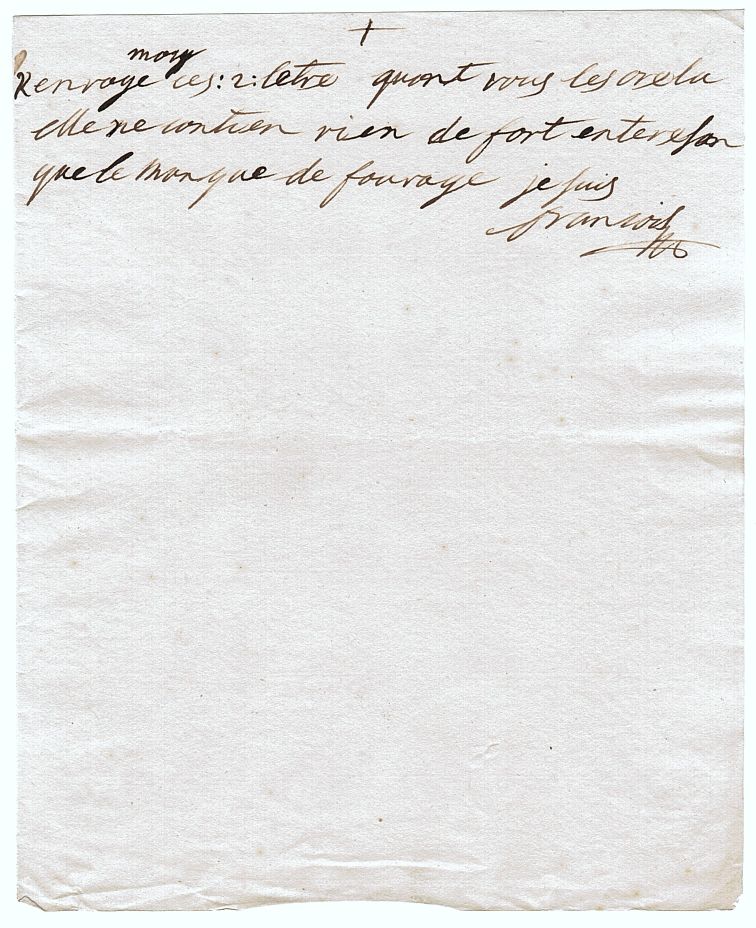 +
moy
Renvoye ces: 2: letre quant vous les ore lu
elle ne contien rien de fort enteresan
que le manque de fourage je suis
francois